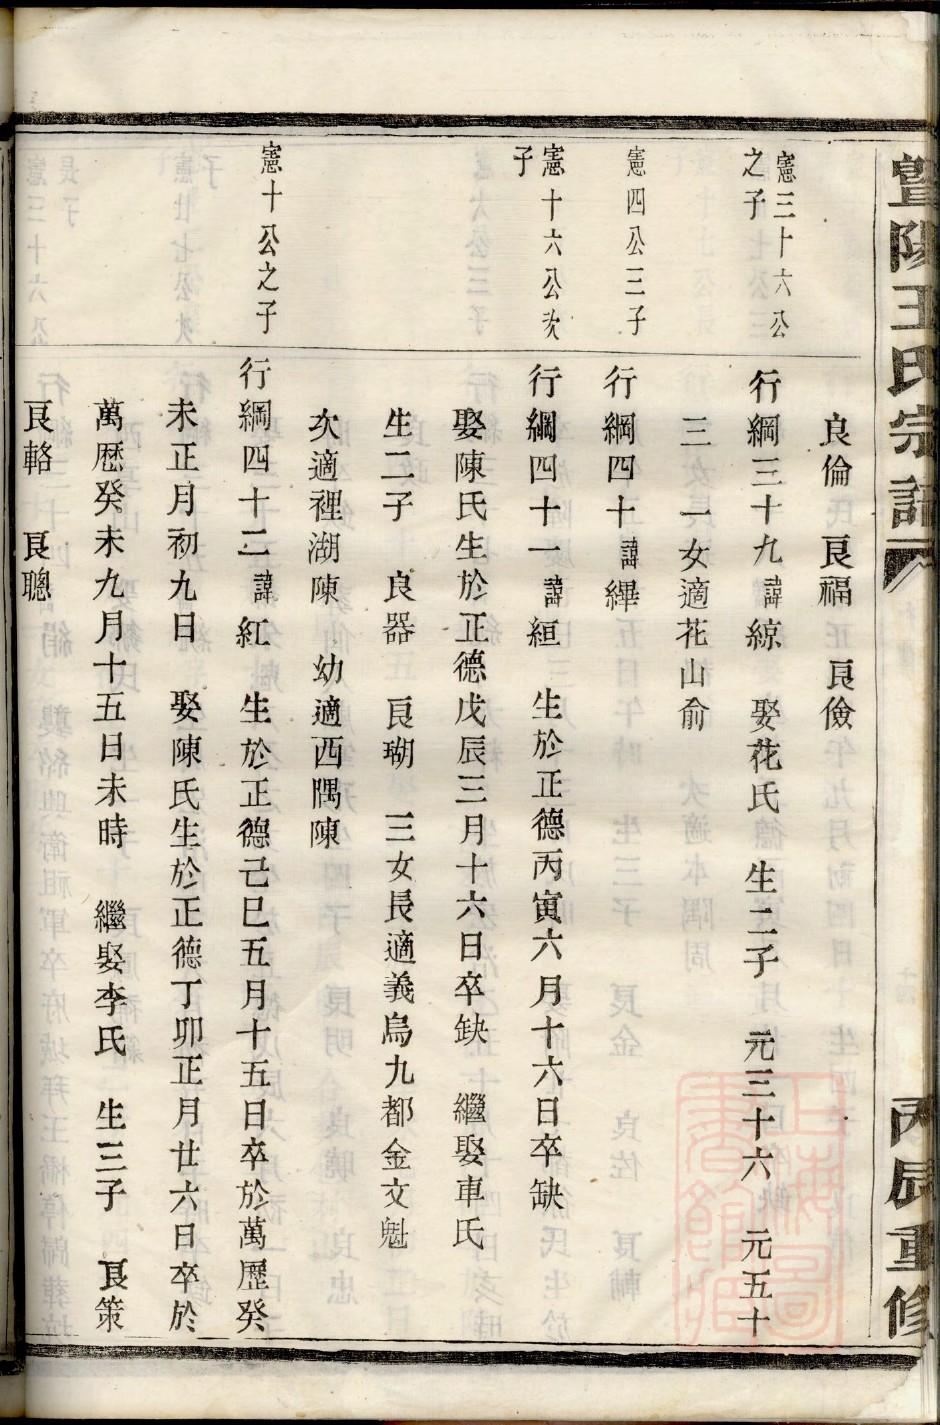 暨陽王氏宗譜
丙辰重修
良倫　良福　良儉
憲三十六公
之子
行綱三十九諱綜　娶花氏　生二子　元三十六　元五十
三　一女適花山俞
憲四公三子
行綱四十諱繹
憲十六公次
子
行綱四十一諱絙　生於正德丙寅六月十六日卒缺
娶陳氏生於正德戊辰三月十六日卒缺　繼娶車氏
生二子　良器　良瑚　三女長適義烏九都金文魁
次適裡湖陳　幼適西隅陳
憲十公之子
行綱四十二諱紅　生於正德己巳五月十五日卒於萬歷癸
未正月初九日　娶陳氏生於正德丁卯正月廿六日卒於
萬歷癸未九月十五日未時　繼娶李氏　生三子　良策
良輅　良聰